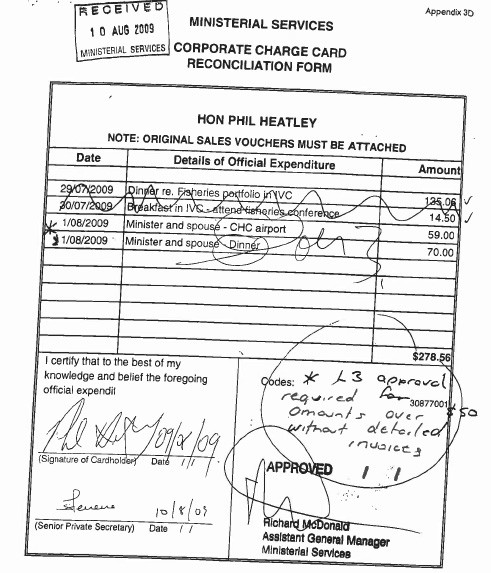 Appendix 3D
RECEIVED
10 AUG 2009
MINISTERIAL SERVICES
MINISTERIAL SERVICES
CORPORATE CHARGE CARD
RECONCILIATION FORM
HON PHIL HEATLEY
NOTE: ORIGINAL SALES VOUCHERS MUST BE ATTACHED
Date Details of Official Expenditure Amount
29/07/2009 Dinner re. Fisheries portfolio in IVC 135.06 ✓
30/07/2009 Breakfast in IVC - attend fisheries conference 14.50 ✓
* 1/08/2009 Minister and spouse - CHC airport 59.00
1/08/2009 Minister and spouse - Dinner 70.00
$278.56
I certify that to the best of my
knowledge and belief the foregoing
official expendit
09/8/09
(Signature of Cardholder) Date / /
10/8/09
(Senior Private Secretary) Date / /
Codes: * L3 approval
required for 30877001 $50
amounts over
without detailed
invoices
APPROVED / /
Richard McDonald
Assistant General Manager
Ministerial Services